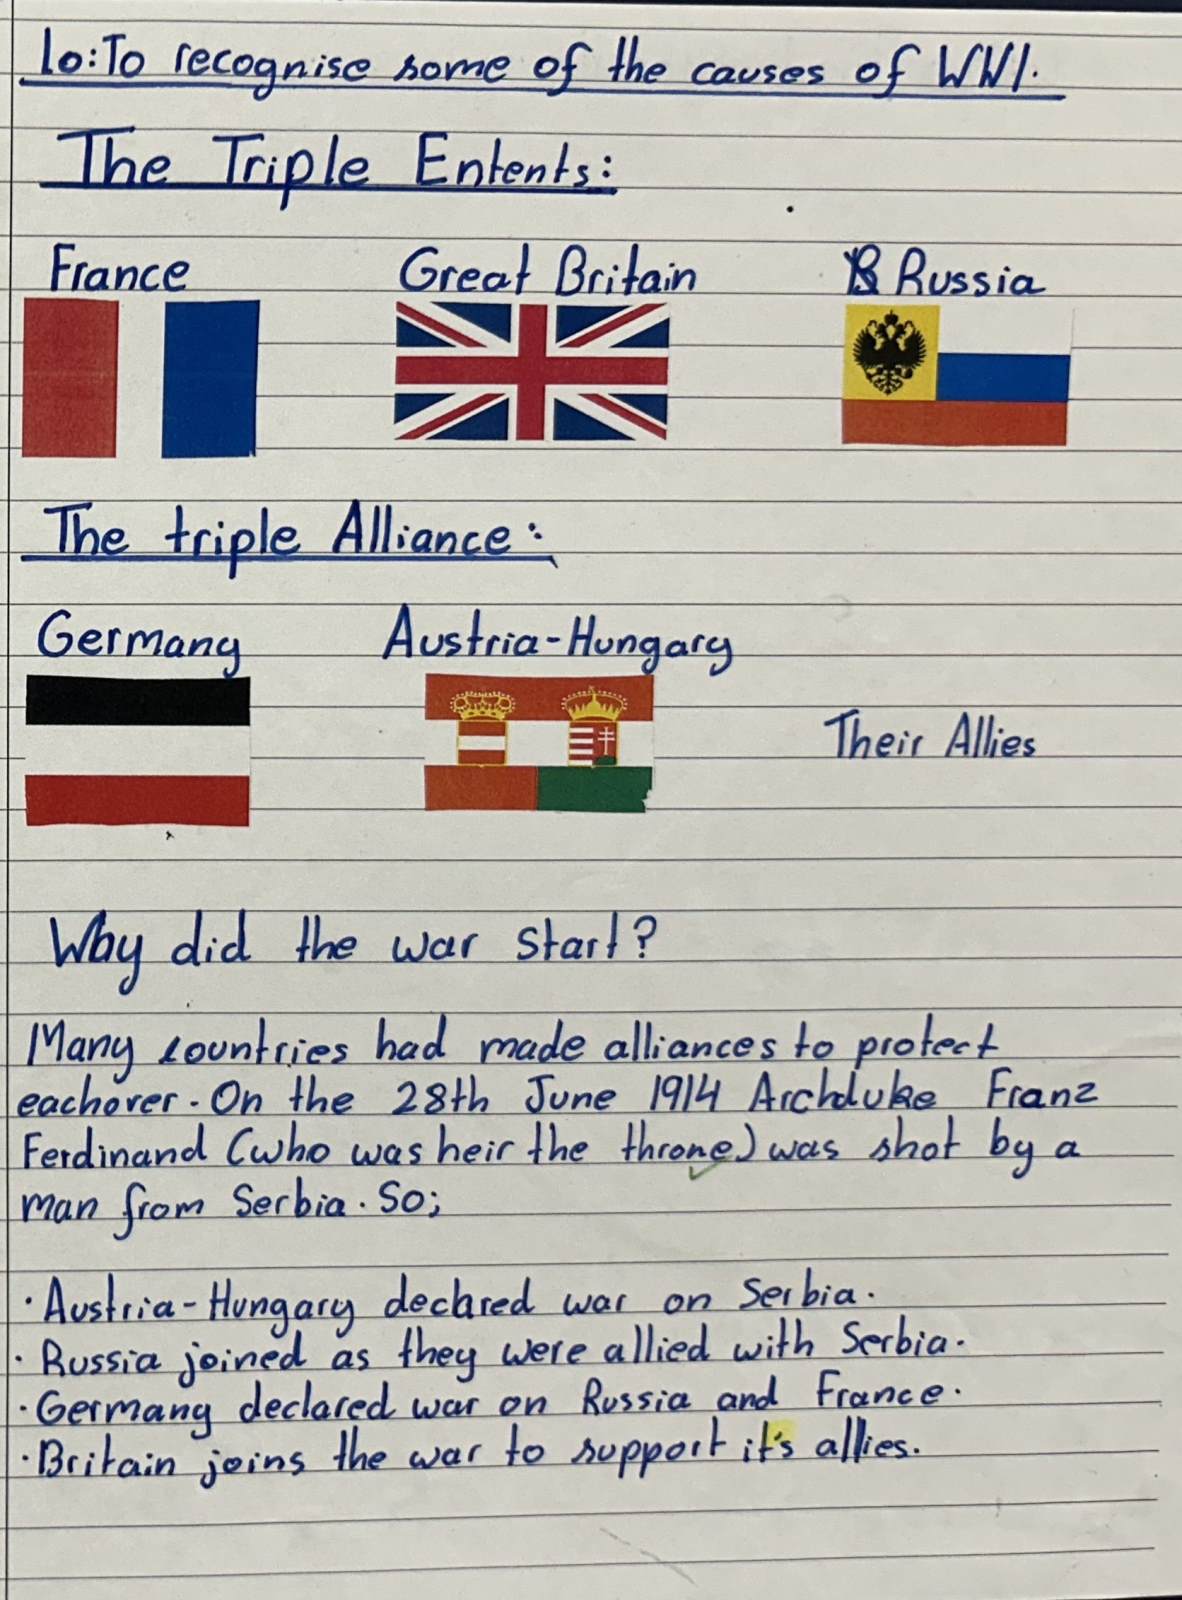 lo: To recognise some of the causes of WW1.
The Triple Entents:
France Great Britain Russia
The triple Alliance:
Germany Austria-Hungary
Their Allies
Why did the war start?
Many countries had made alliances to protect
eachover. On the 28th June 1914 Archduke Franz
Ferdinand (who was heir the throne) was shot by a
man from Serbia. So;
· Austria-Hungary declared war on Serbia.
· Russia joined as they were allied with Serbia.
· Germany declared war on Russia and France.
· Britain joins the war to support it's allies.